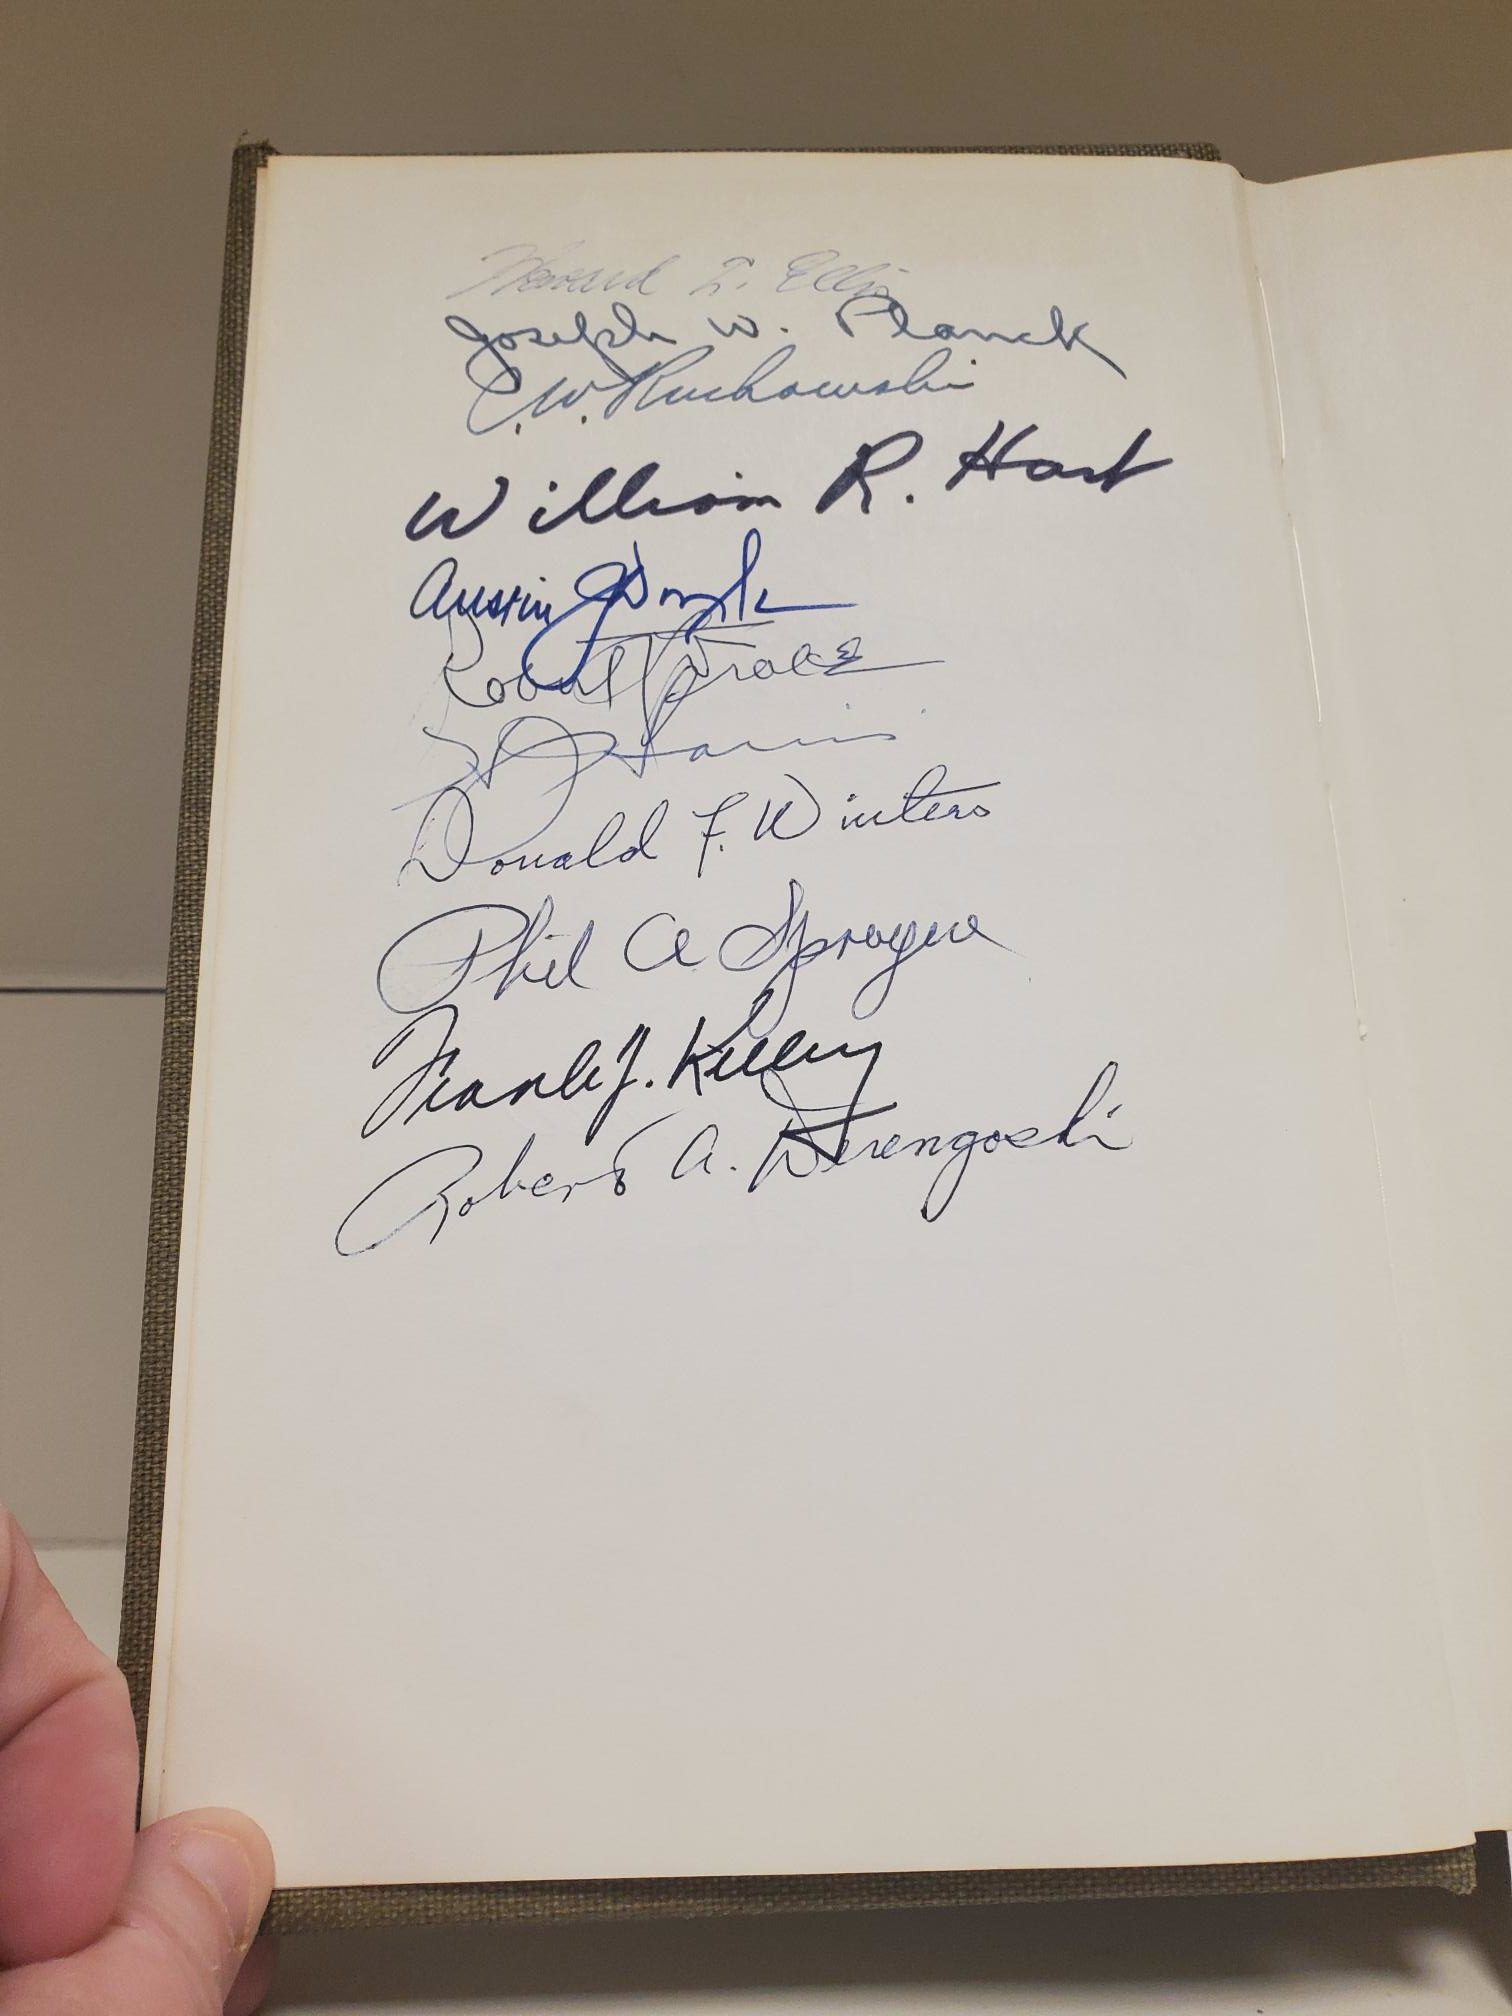 Howard T. Ellis
Joseph W. Planck
C. W. Ruchowski
William R. Hart
Austin J Doyle
Robert Drake
Harris
Donald F. Winters
Phil A Sprague
Frank J. Kelley
Robert A. Derengoski